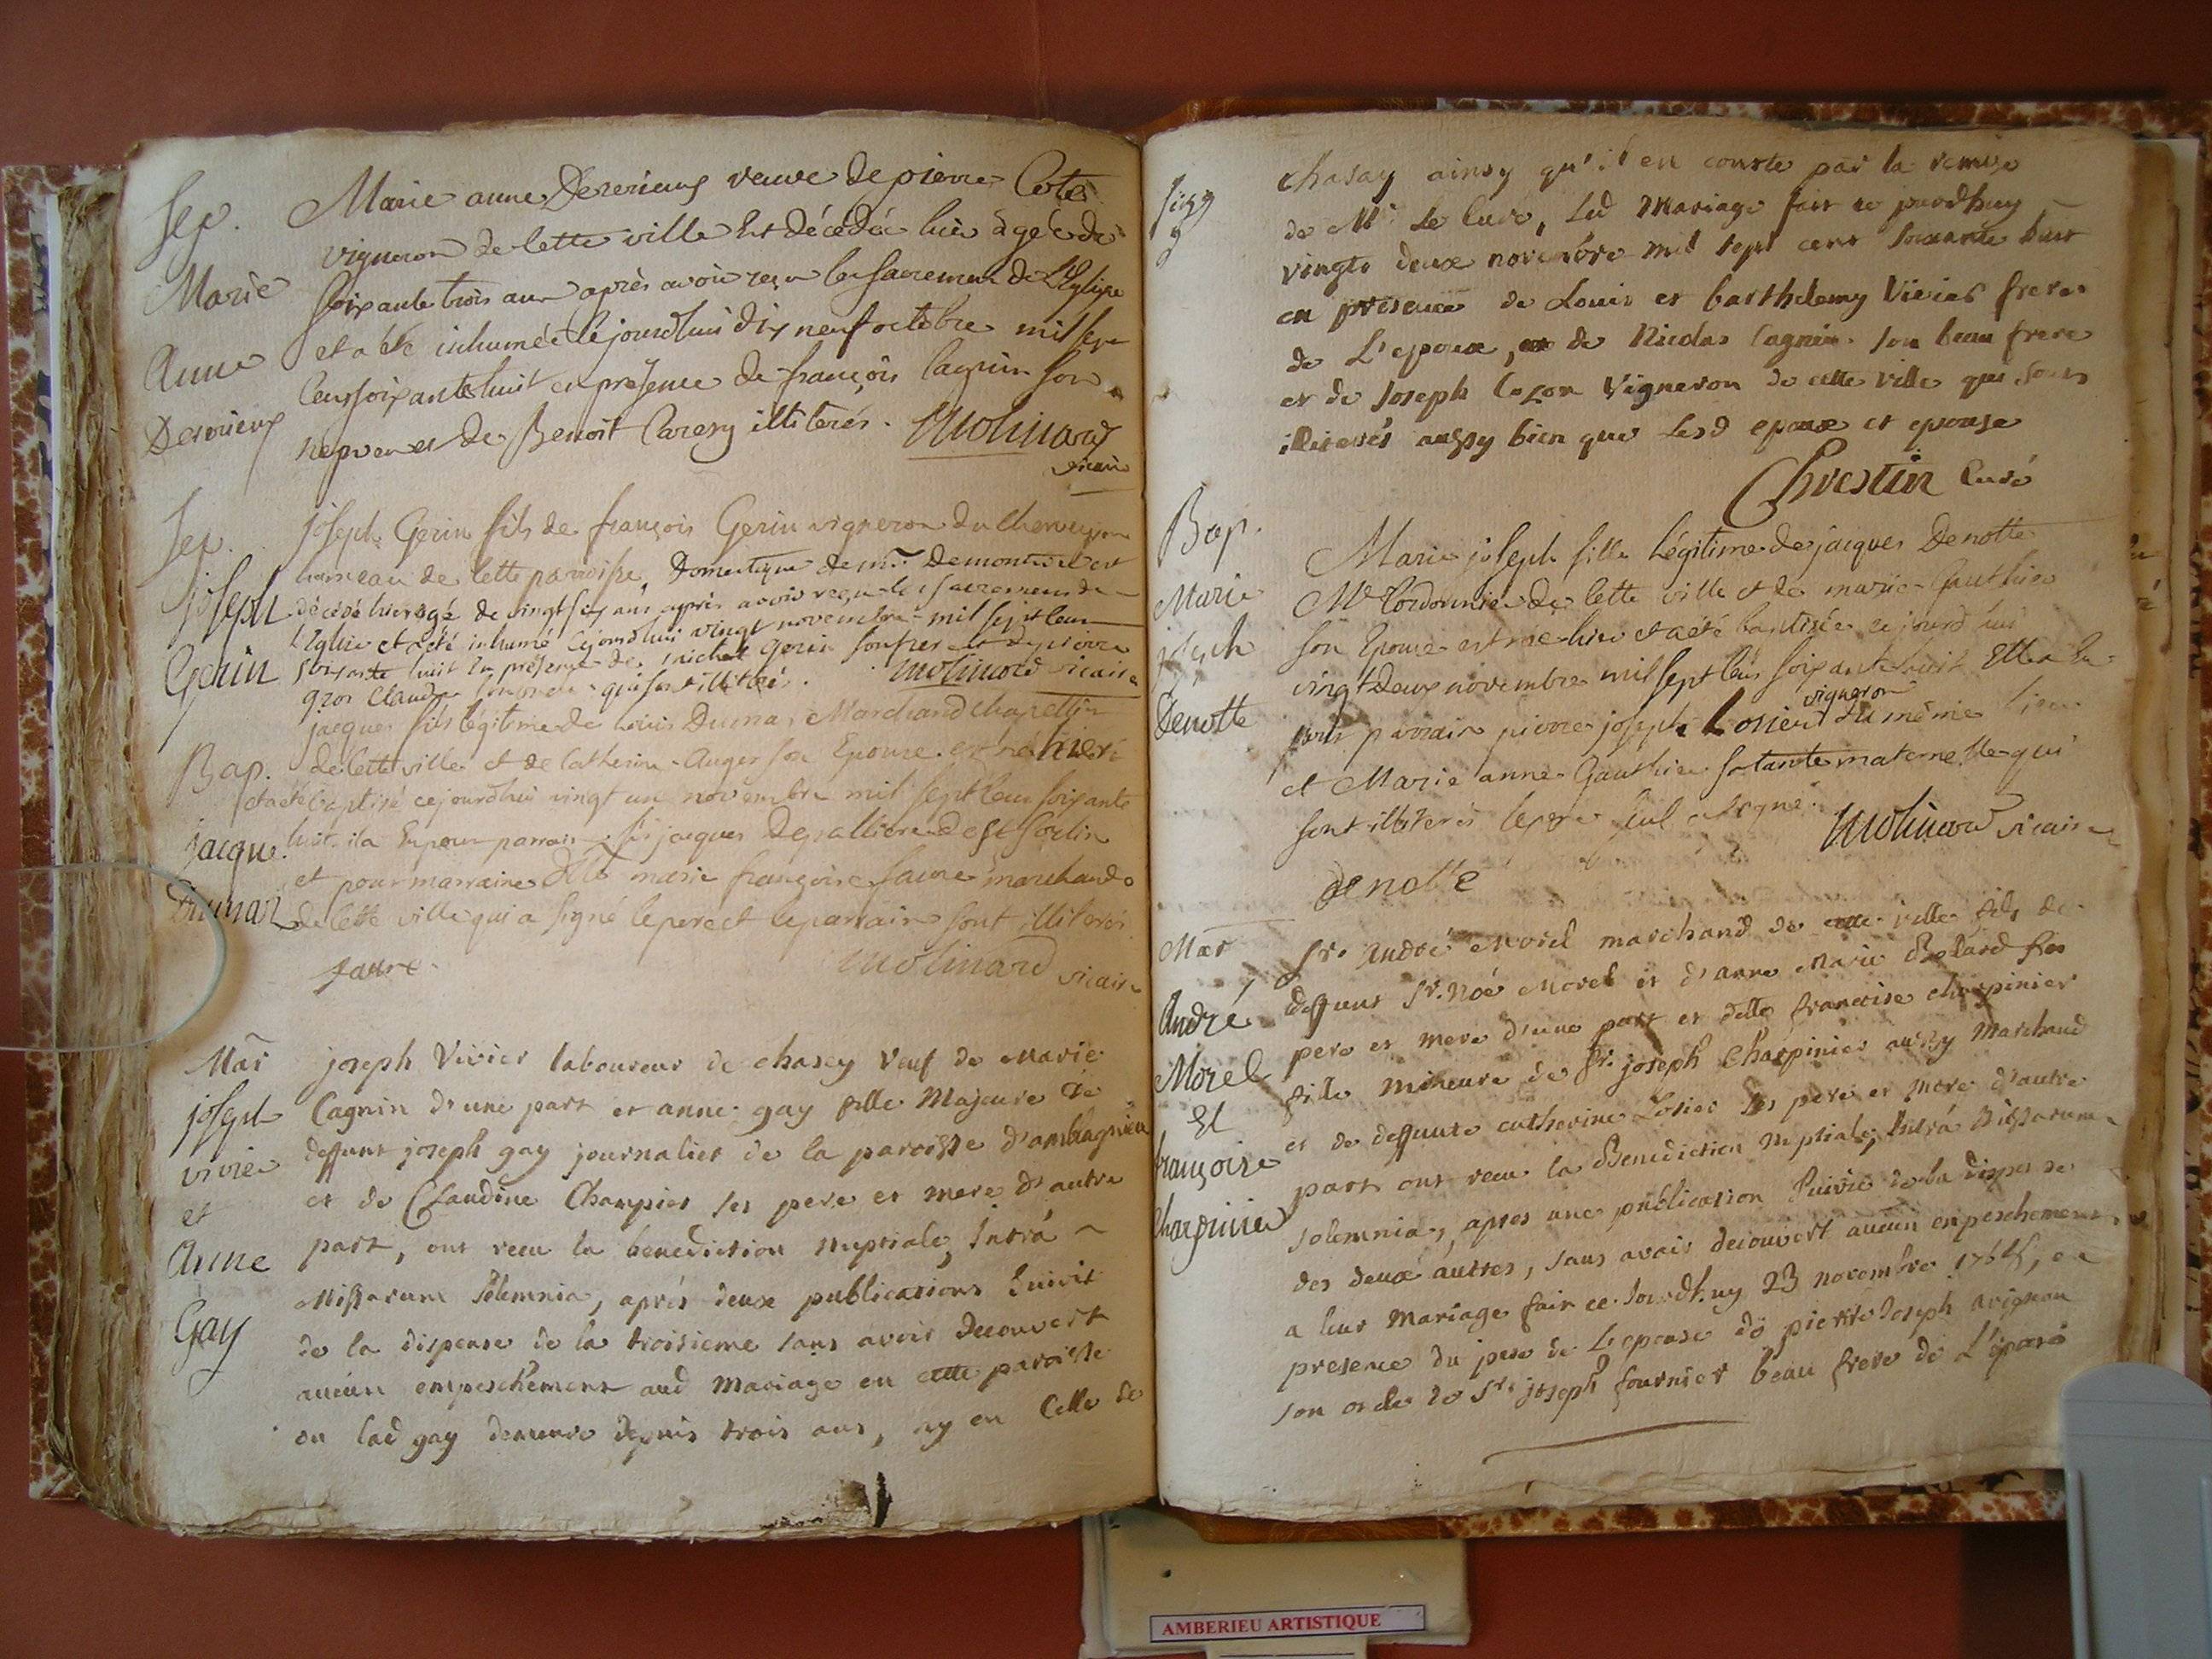 Sep.
Marie
Anne
Deserieux
Marie anne Deserieux veuve de pierre Cote
vigneron de Cette ville Est décédée hièr àgée de
soixante trois ans après avoir reçu les sacremens de L'Eglise
et a été inhumée Cejourdhui dix neuf octobre mil sept
Cens soixante huit en présence de françois Cagnin son
neveu et de Benoit illiterés. Molinard
vicaire
Sep.
joseph
Gerin
joseph Gerin fils de françois Gerin vigneron du
hameau de Cette parroisse, Domestique de mr. Demontviol est
décédé hier agé de vingt six ans après avoir reçu les sacremens de
L'Eglise et a été inhumé Cejourdhui vingt novembre mil sept Cens
soixante huit En présence de michel Gerin son frere et de pierre
gros Claude qui sont illiterés. Molinard vicaire
Bap.
jacque
Dumas
jacques fils légitime de Louis Dumas Marchand Chapellier
de Cette ville et de Catherine Auger son Epouse est né hier
et a été baptisé cejourdhui vingt un novembre mil sept Cens soixante
huit. il a Eu pour parrain Sr jacques
et pour marraine Dlle marie françoise faure marchande
de Cette ville qui a signé le pere et le parrain sont illiterés
faure. Molinard vicaire
Mar
joseph
vivier
et
Anne
Gay
joseph Vivier laboureur de chasey Veuf de Marie
Cagnin d'une part et anne gay fille Majeure de
deffunt joseph gay journalier de la paroisse d'ambagnieu
et de Claudine Champier ses pere et mere d'autre
part, ont receu la benediction nuptiale, Intrá
Missarum solemnia, aprés deux publications suivit
de la dispense de la troisieme sans avoir decouvert
aucun empeschement aud mariage en cette paroisse
ou lad gay demeure depuis trois ans, ny en Celle de
chasay ainsy qu'il en conste par la remise
de Mr. Le Curé, Led Mariage fait ce jourdhuy
vingte deux novembre mil sept cent soixante huit
en présence de Louis et barthelemy Vivier freres
de L'epoux, de Nicolas Cagnin son beau frere
et de Joseph Cozon Vigneron de cette ville qui sont
illiterés aussy bien que Lesd epoux et epouse
Chrestin Curé
Bap.
Marie
joseph
Denotte
Marie joseph fille Légitime de jacques Denotte
Me Cordonnier de Cette ville et de marie Gauthier
son Epouse est née hier et a été baptisée cejourd'hui
vingt Deux novembre mil sept Cens soixante huit Elle a Eu
pour parrain pierre joseph Losier vigneron du même lieu
et Marie anne Gauthier sa tante maternelle qui
sont illiterés le pere seul a signé. Molinard vicaire
denotte
Mar
André
Morel
Et
françoise
Charpinier
Sr. André Morel marchand de cette ville fils de
deffunt Sr. Noé Morel et d'anne Marie ses
pere et mere d'une part et delle francoise charpinier
fille mineure de Sr. joseph Charpinier aussy Marchand
et de deffunte catherine Losier ses pere et mere d'autre
part ont receu la Benediction nuptiale, Intrá Missarum
solemnia, apres une publication suivie de la dispense
des deux autres, sans avoir decouvert aucun enpeschement
a leur Mariage fait ce Jourdhuy 23 novembre 1768, en
presence du pere de L'epouse de pierre Joseph avignon
son oncle de Sr. joseph fournier beau frere de L'epoux
AMBERIEU ARTISTIQUE